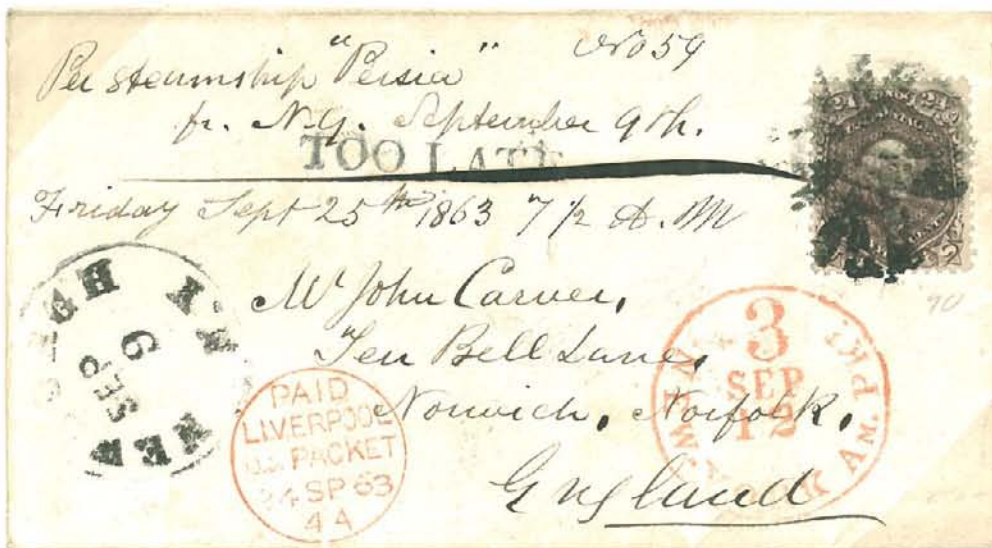 Per steamship "Persia" No 59
fr. N.Y. September 9th.
TOO LATE
Friday Sept 25th 1863 7 1/2 A.M
Mr John Carver,
Ten Bell Lane,
Norwich, Norfolk,
England
SEP 9
PAID
LIVERPOOL
U.S. PACKET
24 SP 63
4 A
3
SEP
12
NEW YORK AM. PKT.
24 24
90